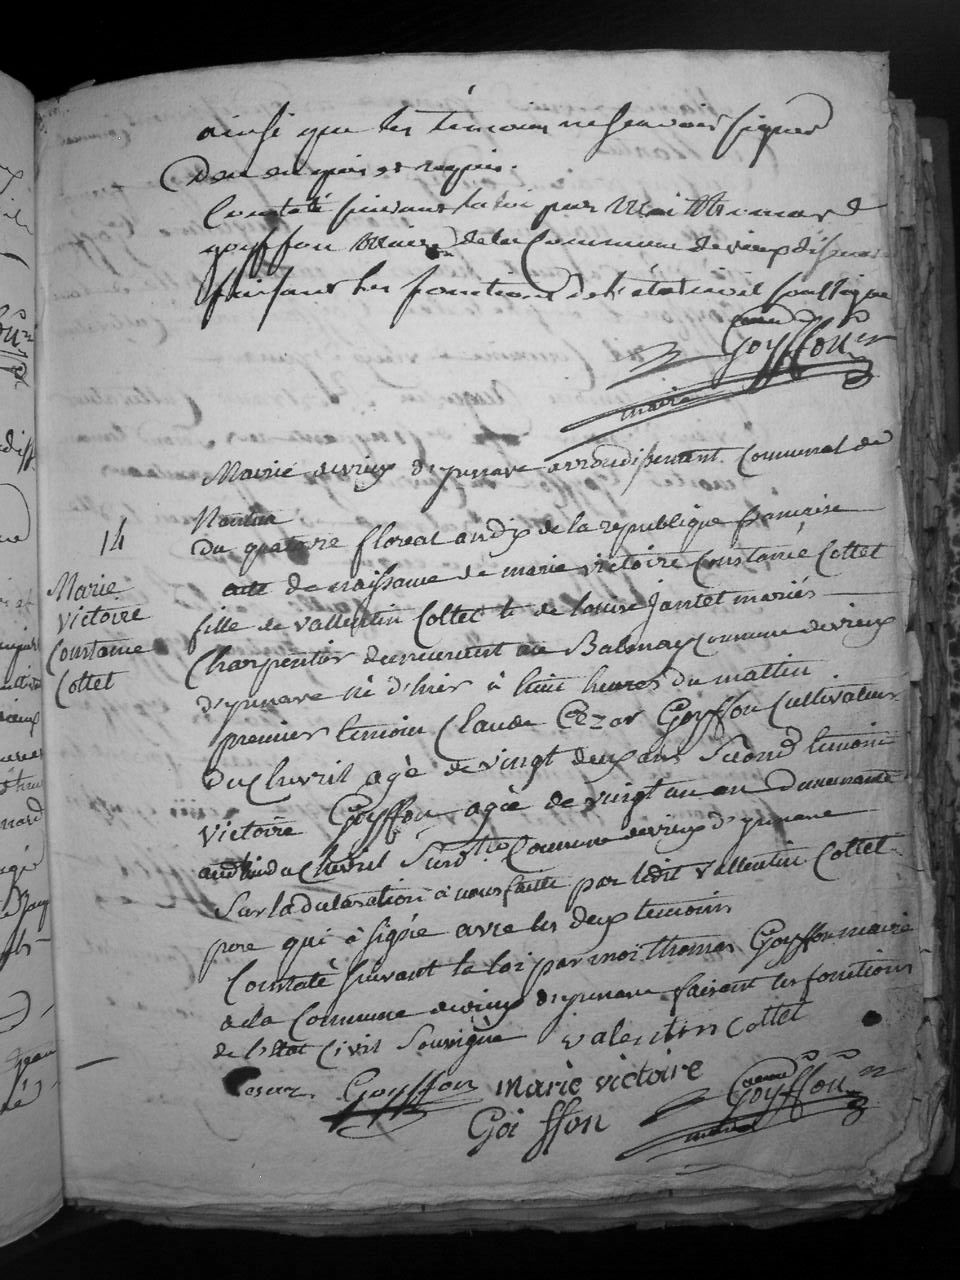 ainsi que les temoins ne scavoir signer
De ce enquis et requis.
Constaté suivant la loi par Moi thomas
goyffon Maire de la Commune de vieux disenave
faisant les fonctions de l'etat civil soussigne
Goyffon
maire
Mairie de vieux d'yzenave arrondissement Communal de
Nantua
14
Du quatorze floreal an dix de la republique francaise
Marie
victoire
Constance
Cottet
acte de naissance de marie victoire Constance Cottet
fille de vallentin Cottet et de louise Jantet mariés
Charpentier demeurant au Balmay Commune de vieux
d'yzenave né d'hier à huit heures du mattin
premier temoin Claude Cezar Goyffon Cultivateur
du Chevril agé de vingt deux ans Second temoin
victoire Goyffon agée de vingt un an demeurante
audit lieu du Chevril Susdte Commune de vieux d'yzenave
Sur la declaration à nous faitte par ledit vallentin Cottet
pere qui à signé avec les deux temoins
Constaté suivant la loi par moi thomas Goyffon maire
de la Commune de vieux d'yzenave faisant les fonctions
de l'Etat Civil Sousigné valentin cottet
Cesar Goyffon marie victoire
Goiffon
Goyffon
maire